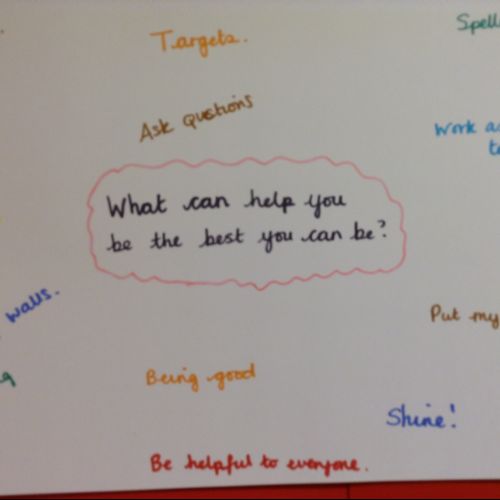 Targets.
Ask questions
Work
What can help you
be the best you can be?
walls.
Put my
Being good
Shine!
Be helpful to everyone.